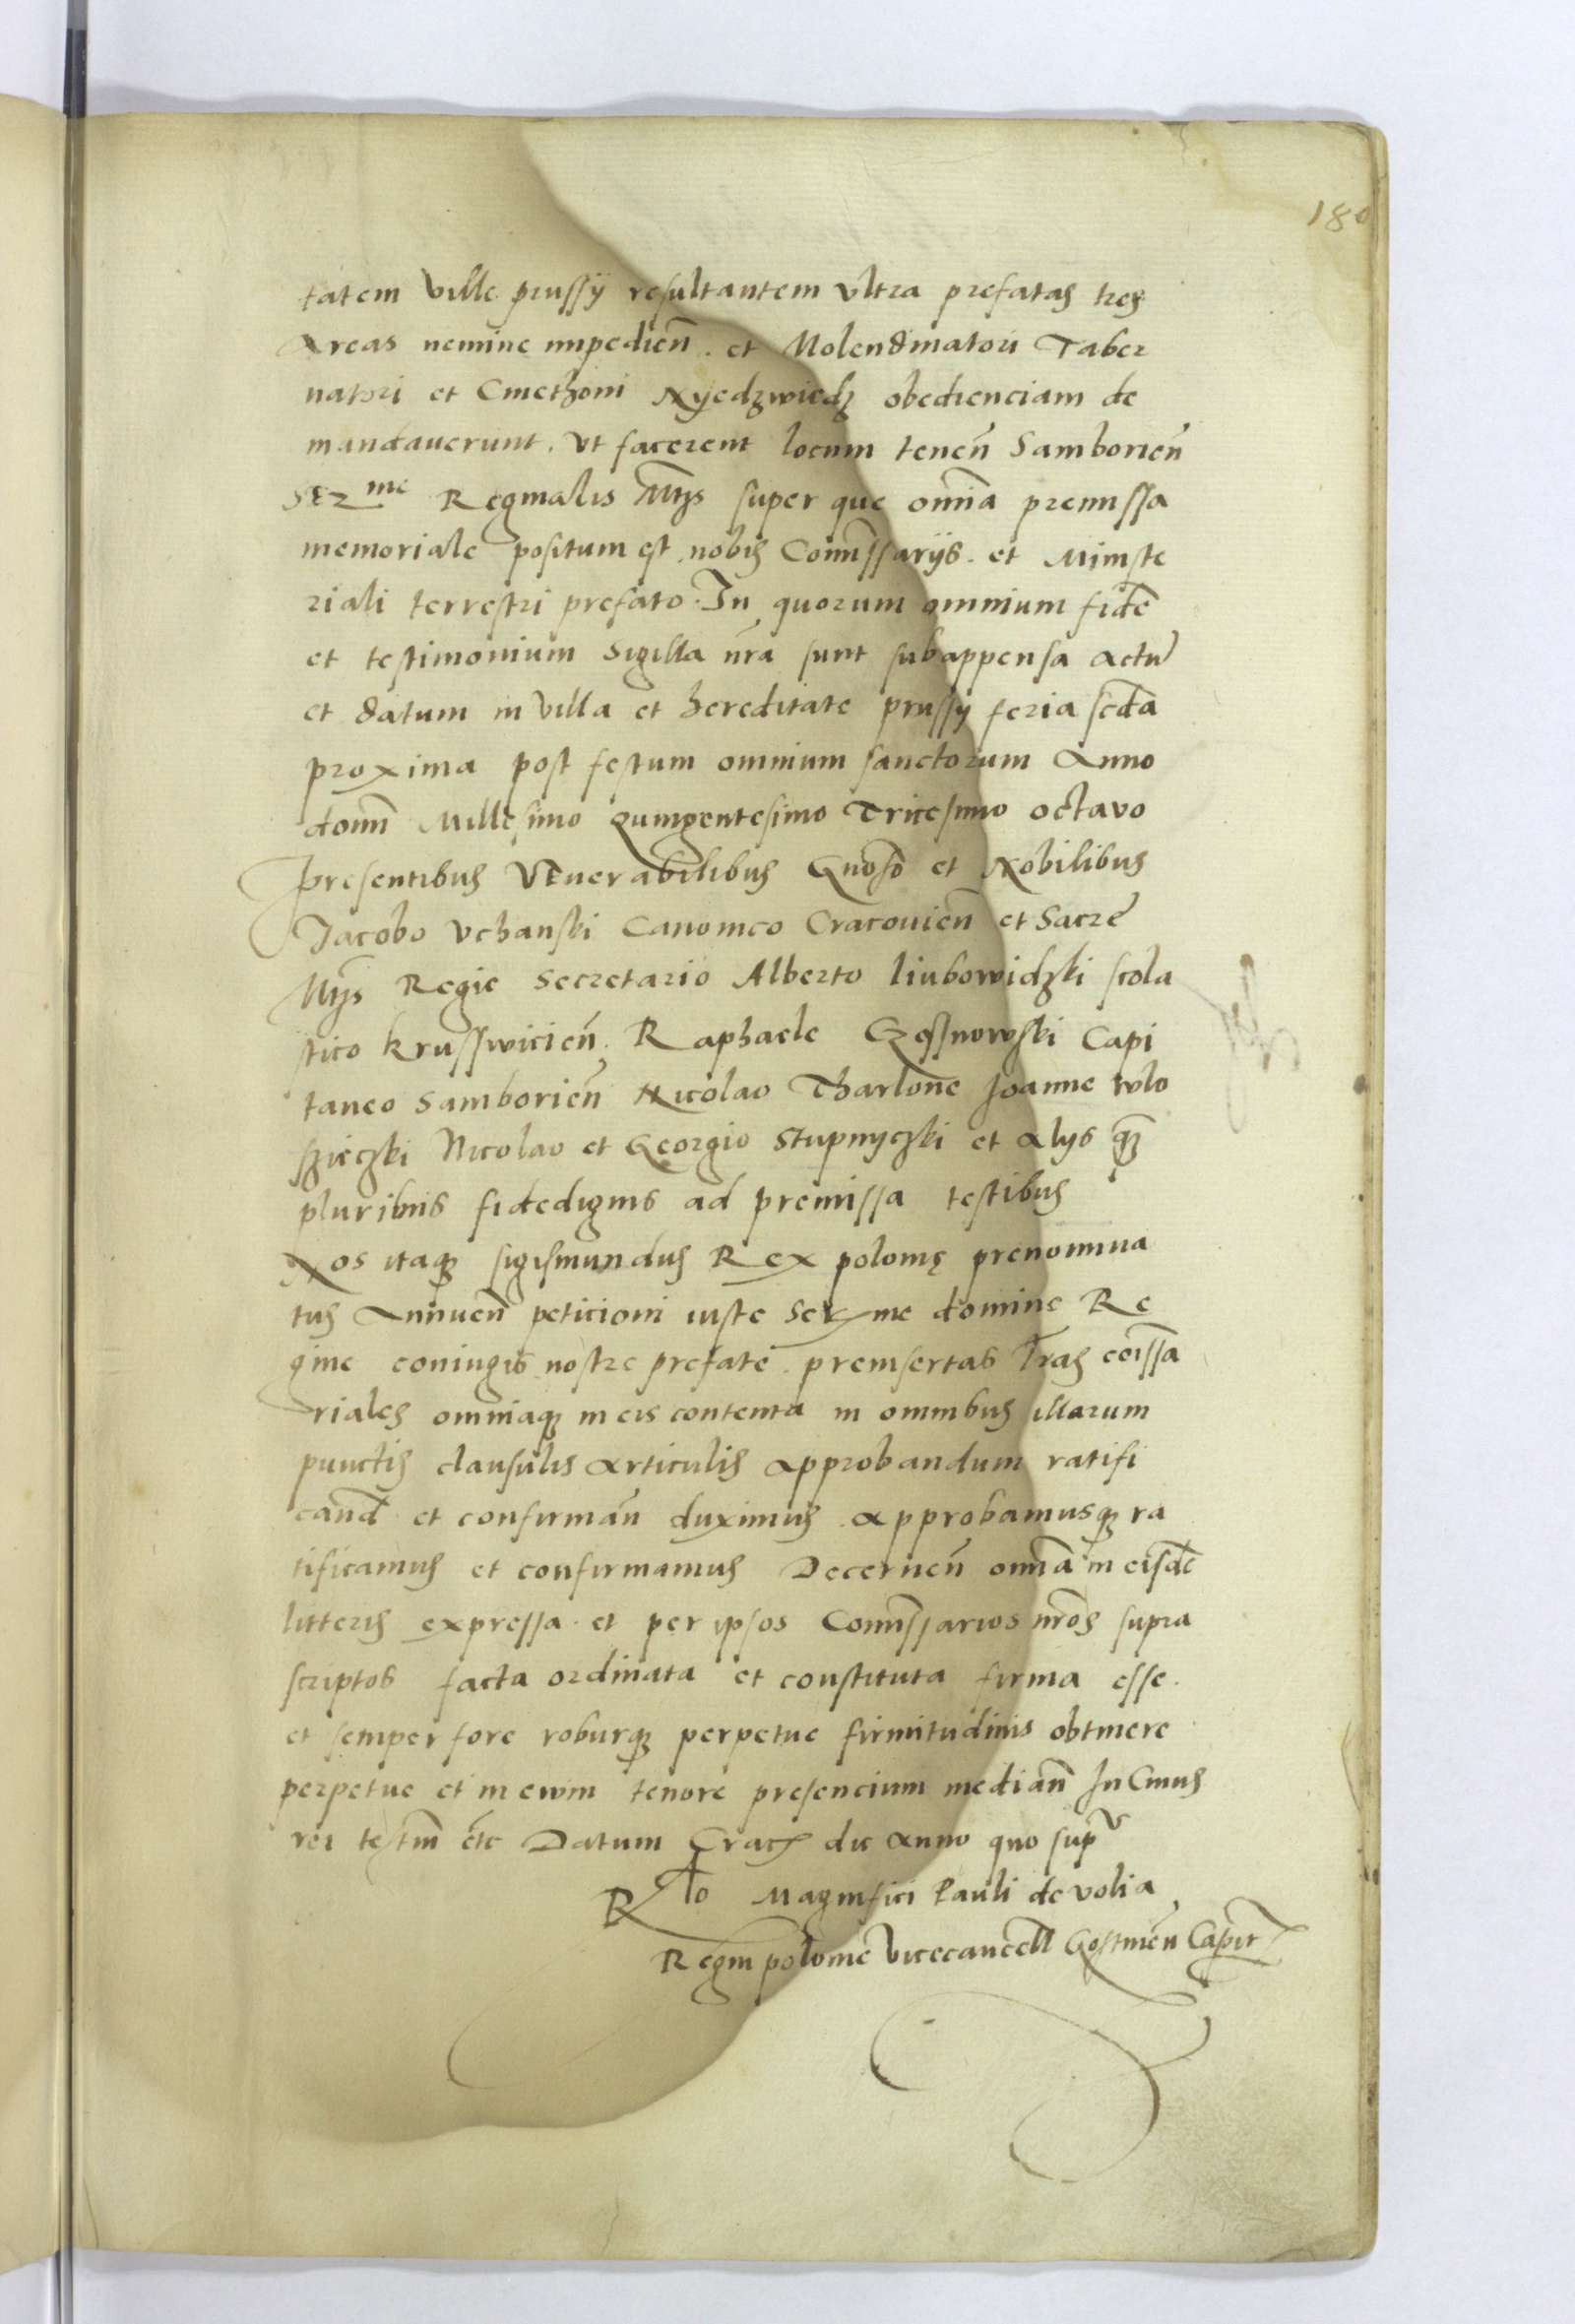 180
tatem ville prussÿ resultantem vltra prefatas tres
Areas nemine impedien̄. et Molendinatori Taber
natori et Cmethoni Nyedzwiedz obedienciam de
mandauerunt. vt facerent locum tenen̄ Samborien̄
Serme Reginalis Mtis super que om̄ia premissa
memoriale positum est nobis Com̄issarÿs. et Ministe
riali terrestri prefato. In quorum omnium fidē
et testimonium Sigilla n̄ra sunt subappensa Actū
et datum in villa et hereditate prussÿ feria scd̄a
proxima post festum omnium sanctorum Anno
domī Millesimo quingentesimo Tricesimo octavo
presentibus Venerabilibus Gnoso et Nobilibus
Jacobo vchanski Canonico Cracouien̄ et Sacrē
Mtis Regie Secretario Alberto liubowidzki scola
stico krusswicien̄. Raphaele Gossnowski Capi
taneo Samborien̄ Nicolao Tharlone Joanne wlo
szieczki Nicolao et Georgio Stupnyczki et Alys q̄z
pluribus fidedignis ad premissa testibus
Nos itaq3 sigismundus Rex polonię prenomina
tus Annuen̄ peticioni iuste Serme domine Re
gine coniugis nostre prefate. preinsertas l̄ras com̄issa
riales omniaq3 in eis contenta in omnibus illarum
punctis clausulis Articulis Approbandum ratifi
cand̄ et confirman̄ duximus. Approbamusq3 ra
tificamus et confirmamus Decernen̄ om̄ia in eisdē
litteris expressa. et per ipsos Com̄issarios nr̄os supra
scriptos facta ordinata et constituta firma esse.
et semper fore roburq3 perpetue firmitudinis obtinere
perpetue et in ewm tenore presencium median̄ In Cuius
rei testm̄ etc Datum Crac die Anno quo supr
Rlo Magnifici Pauli de volia
Regni polonie vicecancell Gostinen̄ Capit